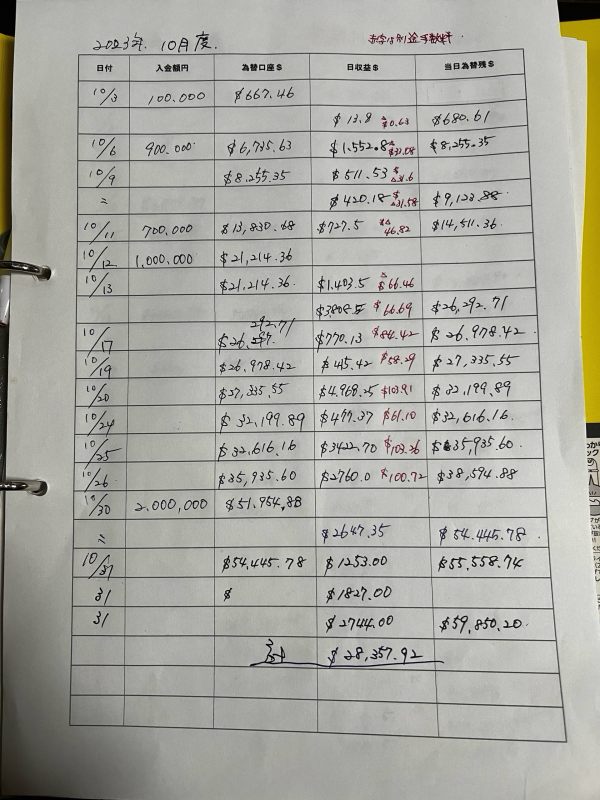 2023年 10月度. 赤字は別途手数料.
日付 入金額円 為替口座$ 日収益$ 当日為替残$
10/3 100.000 $667.46
$13.8 $0.63 $680.61
10/6 900.000 $6,735.63 $1.552.8 $8,255.35
10/9 $8.255.35 $511.53
〃 $420.18 $31.58 $9,123.88
10/11 700,000 $13,830.68 $727.5 46.82 $14,511.36
10/12 1,000,000 $21,214.36
10/13 $21,214.36. $1.403.5 $66.46
$66.69 $26,292.71
10/17 $26, 292.71 $770.13 $84.42 $26,978.42
10/19 $26,978.42 $415.42 $58.29 $27,335.55
10/20 $27,335.55 $4.968.25 $103.91 $32,199.89
10/24 $32,199.89 $477.37 $61.10 $32,616.16.
10/25 $32,616.16 $3422.70 $103.26 $35,935.60.
10/26 $35,935.60 $2760.0 $100.72 $38,594.88
10/30 2.000,000 $51.954,88
〃 $2647.35 $54.445.78
10/31 $54,445.78 $1253.00 $55,558.74
31 $ $1827.00
31 $2744.00 $59,850.20
計 $28,357.92